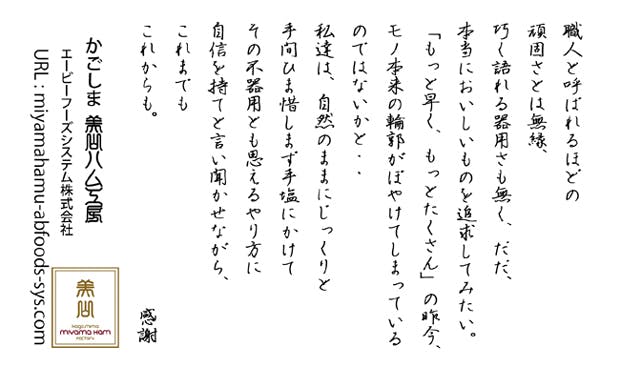 職人と呼ばれるほどの
頑固さとは無縁、
巧く語れる器用さも無く、ただ、
本当においしいものを追求してみたい。
「もっと早く、もっとたくさん」の昨今、
モノ本来の輪郭がぼやけてしまっている
のではないかと・・
私達は、自然のままにじっくりと
手間ひま惜しまず手塩にかけて
その不器用とも思えるやり方に
自信を持てと言い聞かせながら、
これまでも
これからも。
感謝
かごしま 美山ハム工房
エービーフーズシステム株式会社
URL : miyamahamu-abfoods-sys.com
美山
Kagoshima
MIYAMA HAM
FACTORY